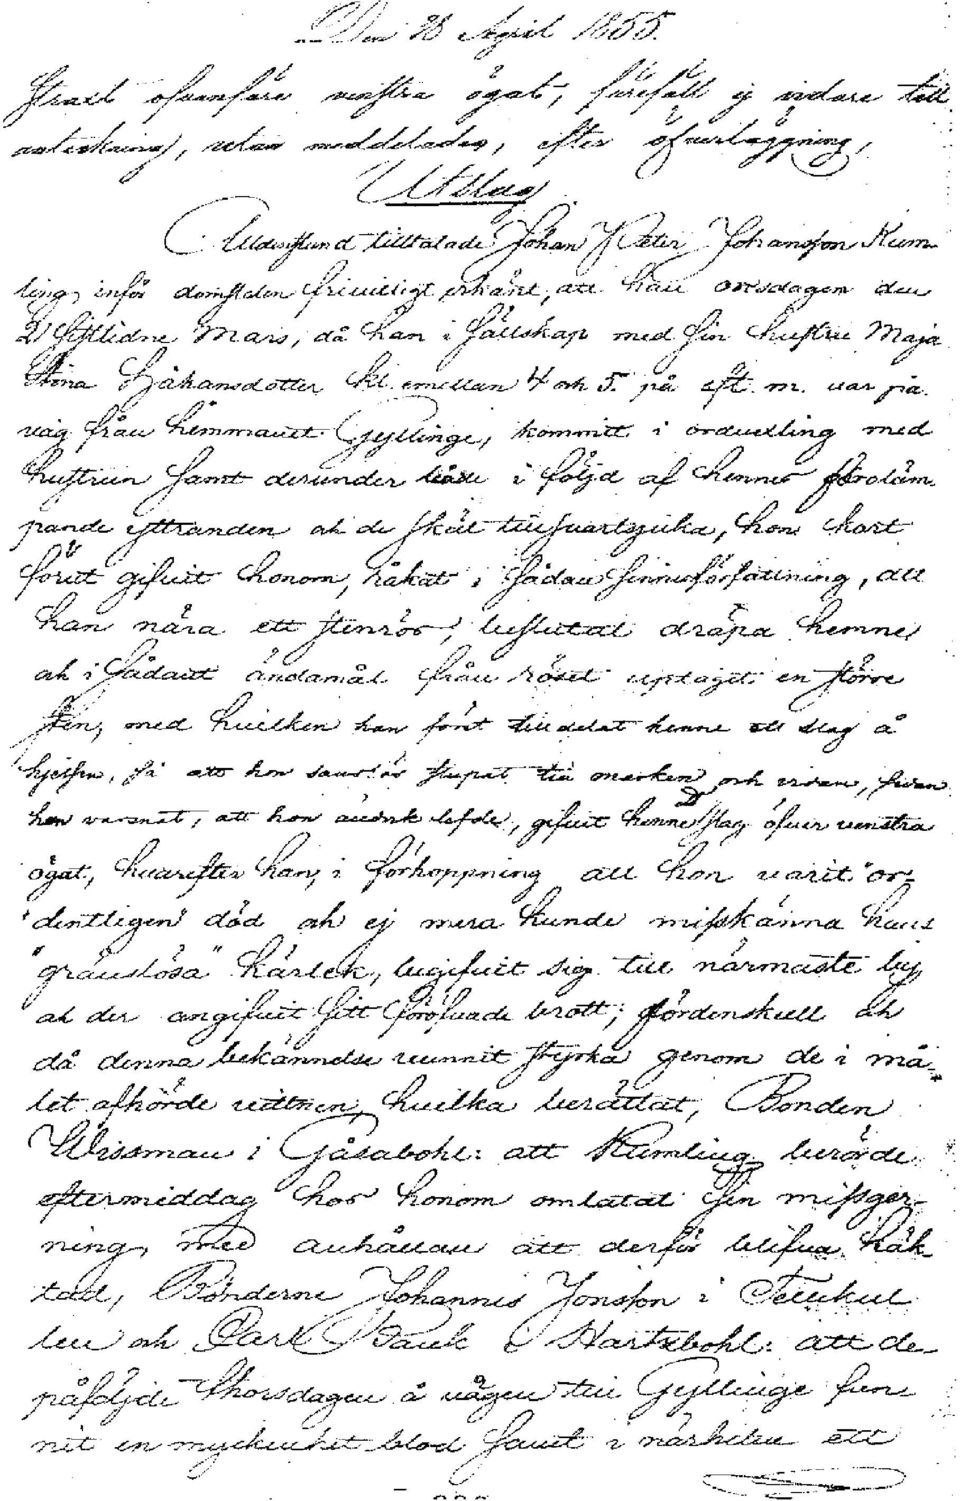 Den 28 April 1855.
strax ofvanföre venstra ögat, föreföll ej vidare till
anteckning, utan meddelades, efter öfverläggning,
Utslag
Alldenstund tilltalade Johan Peter Johansson Kum-
ling, inför domstolen frivilligt erkänt, att han onsdagen den
21 sistlidne Mars, då han i sällskap med sin hustru Maja
Stina Håkansdotter kl. emellan 4 och 5. på eft. m. var på
väg från hemmanet Gyllinge, kommit i ordvexling med
hustrun samt derunder både i följd af hennes föroläm-
pande yttranden och de skäl till svartsjuka, hon kort
förut gifvit honom, råkat i sådan sinnesförfattning, att
han nära ett stenrös, beslutat dräpa henne,
och i sådant ändamål från röset upptaget en större
sten, med hvilken han först tilldelat henne ett slag å
hjessan, så att hon stupat till marken och vidare, sedan
han varsnat, att hon ännu lefde, gifvit henne slag öfver venstra
ögat, hvarefter han, i förhoppning att hon varit "or-
dentligen" död och ej mera kunde misskänna hans
"gränslösa" kärlek, begifvit sig till närmaste by
och der angifvit sitt föröfvade brott; fördenskull och
då denna bekännelse vunnit styrka genom de i må-
let afhörde vittnen, hvilka berättat, Bonden
Wissman i Gåsabohl: att Kumling berörde
eftermiddag hos honom omtalat sin missger-
ning, med anhållan att derför blifva häk-
tad, Bönderne Johannes Jonsson i
och Carl i Hartsbohl: att de
påföljde Thorsdagen å vägen till Gyllinge fun-
nit en myckenhet blod samt i närheten ett